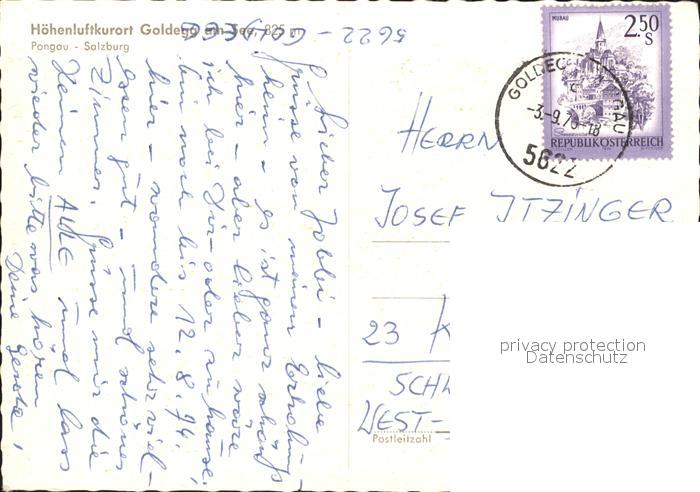 Höhenluftkurort Goldegg am See, 825 m
Pongau - Salzburg
5622 -
Lieber Jobbi - liebe
Grüsse von meinem Erholung-
heim - es ist ganz schön
hier - aber lieber wäre
ich bei Dir - oder zu hause.
bin noch bis 12.8.74.
hier - wandere sehr viel -
Essen gut - und schönes
Zimmer. Grüsse mir die
Deinen ALLE und lass
wieder bitte was hören
Deine
MURAU
2.50
S
REPUBLIK ÖSTERREICH
GOLDEGG
GAU
-3.-9.7
-18
5622
HERRN
JOSEF ITZINGER
23 K
SCHL
WEST-
Postleitzahl
privacy protection
Datenschutz